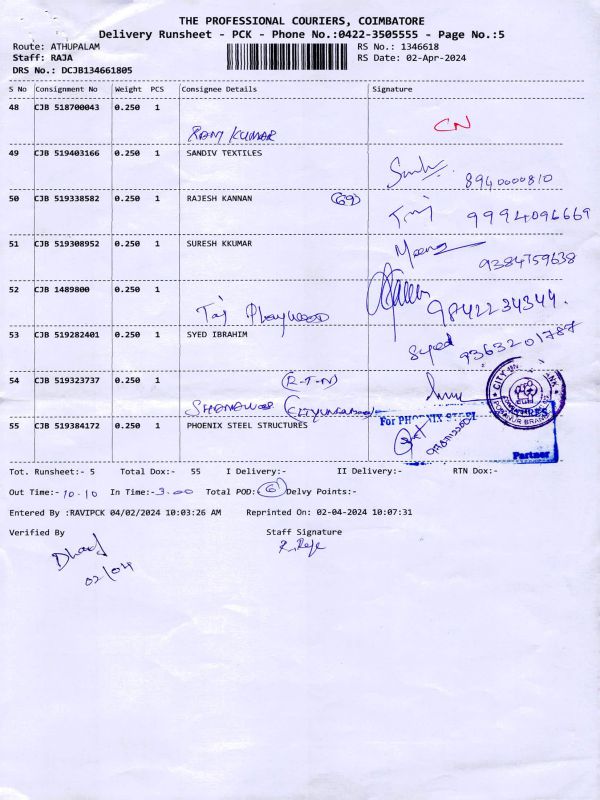 THE PROFESSIONAL COURIERS, COIMBATORE
Delivery Runsheet - PCK - Phone No.:0422-3505555 - Page No.:5
Route: ATHUPALAM RS No.: 1346618
Staff: RAJA RS Date: 02-Apr-2024
DRS No.: DCJB134661805
S No Consignment No Weight PCS Consignee Details Signature
48 CJB 518700043 0.250 1
RAM KUMAR CN
49 CJB 519403166 0.250 1 SANDIV TEXTILES
8940000810
50 CJB 519338582 0.250 1 RAJESH KANNAN (69)
9994096669
51 CJB 519308952 0.250 1 SURESH KKUMAR
9384759638
52 CJB 1489800 0.250 1
Taj Playwood 9842234344.
53 CJB 519282401 0.250 1 SYED IBRAHIM
Syed 9363201787
54 CJB 519323737 0.250 1 (R-T-N)
CITY UNION BANK
55 CJB 519384172 0.250 1 PHOENIX STEEL STRUCTURES
For PHOENIX STEEL
Partner
Tot. Runsheet:- 5 Total Dox:- 55 I Delivery:- II Delivery:- RTN Dox:-
Out Time:- 10.10 In Time:- 3.00 Total POD: 6 Delvy Points:-
Entered By :RAVIPCK 04/02/2024 10:03:26 AM Reprinted On: 02-04-2024 10:07:31
Verified By Staff Signature
R. Raja
02/04